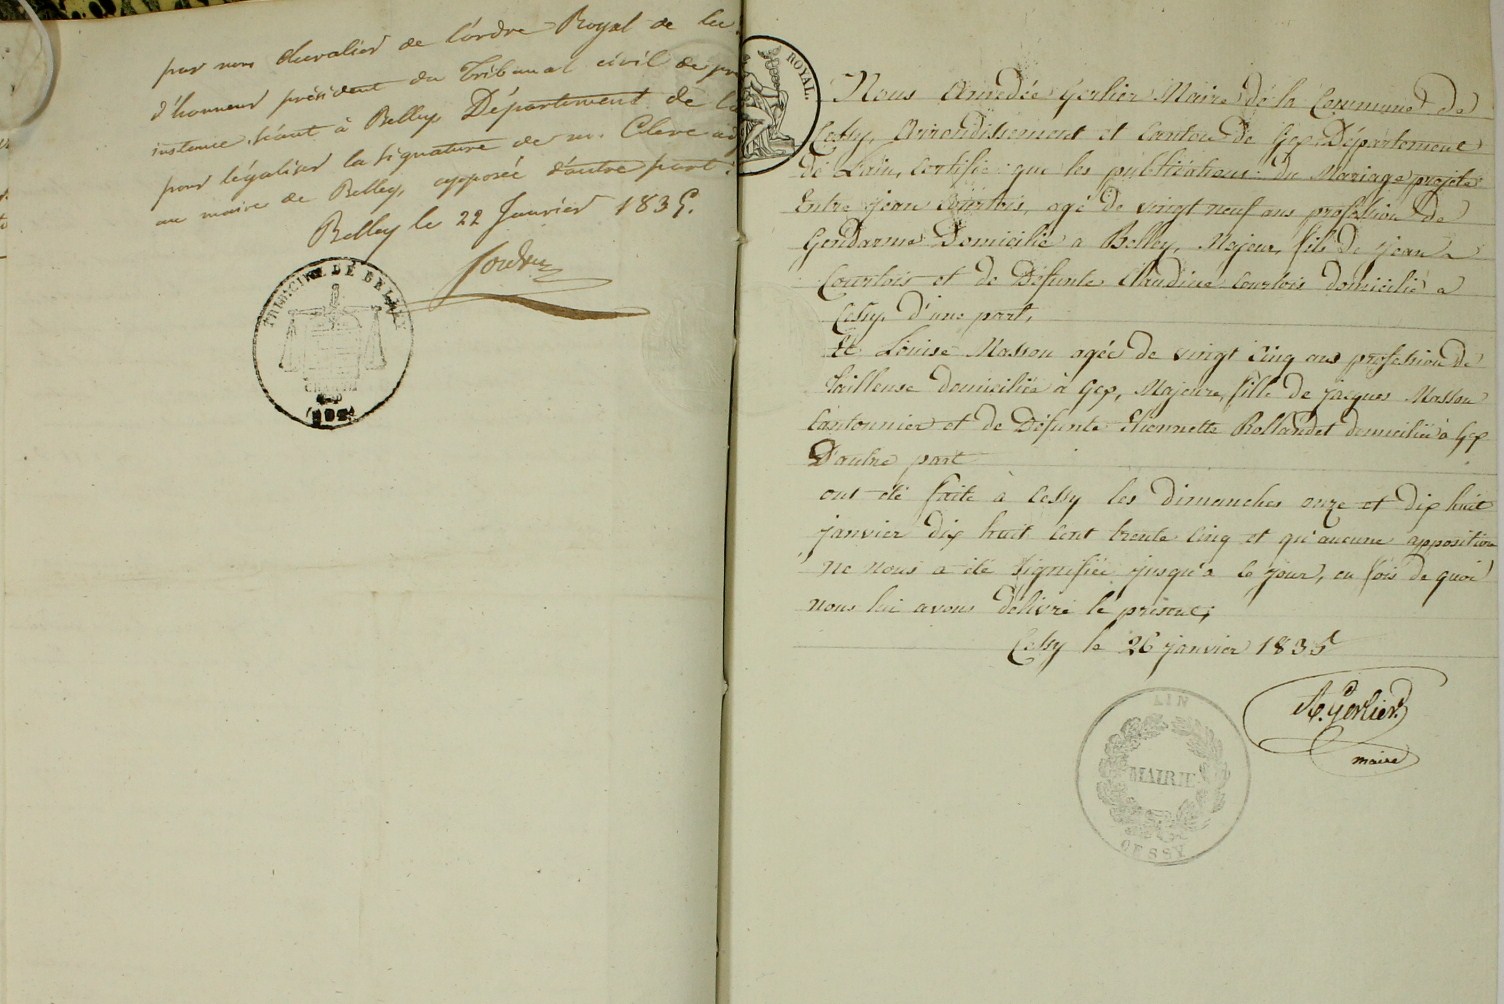 par nous chevalier de l'ordre Royal de la
d'honneur président du Tribunal civil de pr
instance séant à Belley Département de l'a
pour légaliser la signature de m. Clerc adj
au maire de Belley, apposée d'autre part.
Belley le 22 Janvier 1835.
TRIBUNAL DE BELLEY
ROYAL.
Nous Amédée Gerlier Maire de la Commune de
Cessy, Arrondissement et Canton de Gex, Département
de L'ain, certifie que les publications du Mariage projeté
Entre jean Courtois, agé de vingt neuf ans profession de
Gendarme Domicilié a Belley, Majeur, fils de jean
Courtois et de Défunte Claudine Courtois domicilié a
Cessy, d'une part,
Et Louise Masson agée de vingt cinq ans profession de
tailleuse domiciliée à Gex, Majeure, fille de jacques Masson
Cantonnier et de Défunte Etiennette Rollandet domiciliée à Gex
D'autre part
ont été faite à Cessy les Dimanches onze et dix huit
janvier dix huit cent trente cinq et qu'aucune apposition
ne nous a été signifiée jusqu'a ce jour, en fois de quoi
nous lui avons délivré le présent;
Cessy le 26 janvier 1835
A. Gerlier
maire
AIN
MAIRIE
CESSY